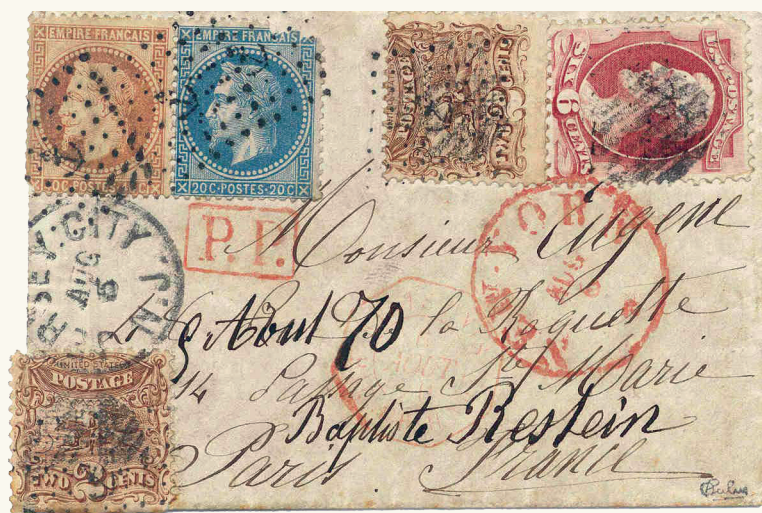 EMPIRE FRANÇAIS
0C·POSTES·10C
EMPIRE FRANÇAIS
20C·POSTES·20C
POSTAGE
TWO CENTS
U.S. POSTAGE
SIX 6 CENTS
JERSEY CITY N.J.
AUG 5
P.P.
NEW YORK
AUG 6
Monsieur Eugene
9 Aout 70
la Roquette
14 Passage Ste Marie
Baptiste Restein
Paris France
UNITED STATES
POSTAGE
TWO 2 CENTS